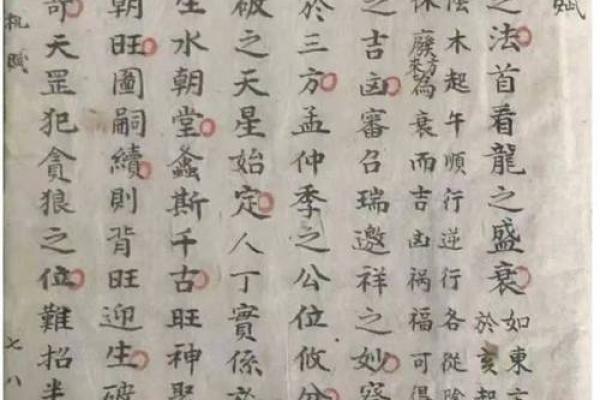 賦
之法首看龍之盛衰如東方
於亥起
陰木起午順行逆行各從陰
休廢為衰而吉凶禍福可得
之吉凶審召瑞邀祥之妙察
於三方孟仲季之公位攸分
破之天星始定人丁實係於
生水朝堂螽斯千古旺神聚
朝旺圖嗣續則背旺迎生破
奇天罡犯貪狼之位難招半
機賦 七八